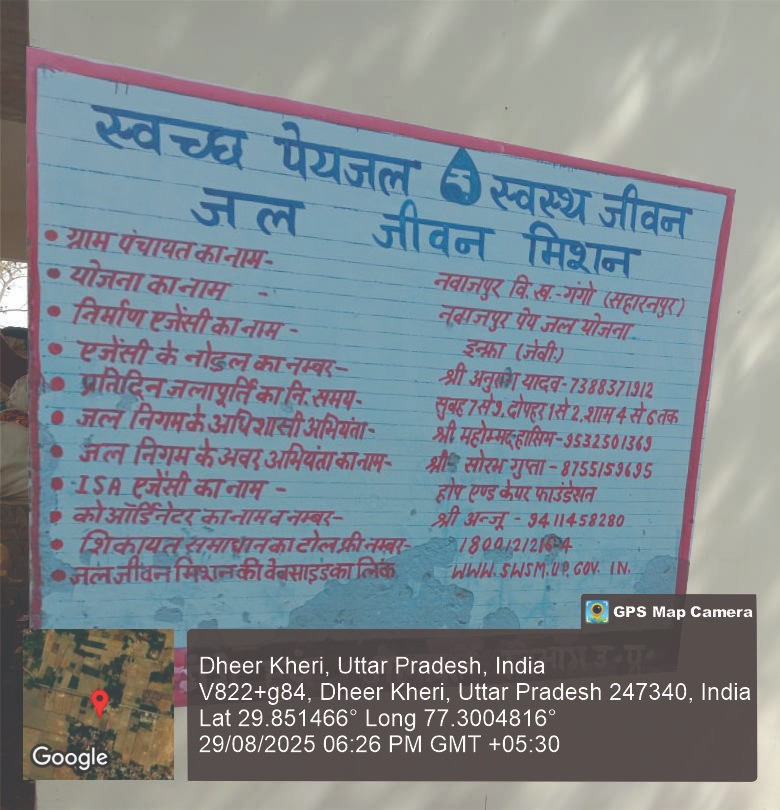 स्वच्छ पेयजल स्वस्थ जीवन
जल जीवन मिशन
• ग्राम पंचायत का नाम- नवाजपुर वि.ख.-गंगो (सहारनपुर)
• योजना का नाम - नवाजपुर पेय जल योजना
• निर्माण एजेंसी का नाम - इन्फ्रा (जेवी.)
• एजेंसी के नोडल का नम्बर- श्री अनुराग यादव-7388371912
• प्रतिदिन जलापूर्ति का नि. समय- सुबह 7 से 9. दोपहर 1 से 2. शाम 4 से 6 तक
• जल निगम के अधिशासी अभियंता- श्री महोम्मद हासिम-9532501369
• जल निगम के अवर अभियंता का नाम- श्री सोरभ गुप्ता - 8755159695
• ISA एजेंसी का नाम - होप एण्ड केयर फाउंडेसन
• कोऑर्डिनेटर का नाम व नम्बर- श्री अन्जू - 9411458280
• शिकायत समाधान का टोल फ्री नम्बर-
• जल जीवन मिशन की वेबसाइड का लिंक WWW.SWSM.UP.GOV.IN.
GPS Map Camera
Dheer Kheri, Uttar Pradesh, India
V822+g84, Dheer Kheri, Uttar Pradesh 247340, India
Lat 29.851466° Long 77.3004816°
29/08/2025 06:26 PM GMT +05:30
Google